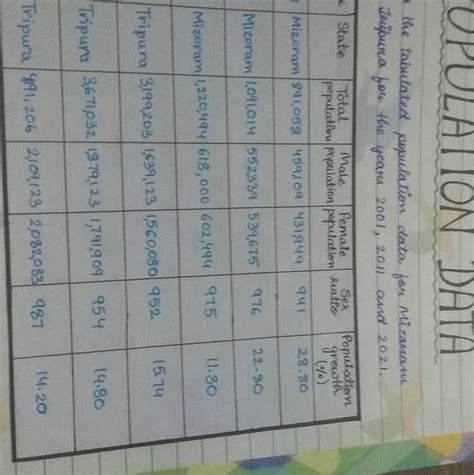 OPULATION DATA
the tabulated population data for Mizoram
Tripura for the years 2001, 2011 and 2021.
State Total population Male population Female population Sex ratio Population growth (%)
Mizoram 891,058 459,109 431,949 941 28.80
Mizoram 1,091,014 552,339 538,675 976 22.80
Mizoram 1,220,494 618,000 602,494 975 11.80
Tripura 3,199,203 1,639,123 1,560,080 952 15.74
Tripura 3,671,032 1,879,123 1,791,909 954 14.80
Tripura 4,191,206 2,109,123 2,082,083 987 14.20